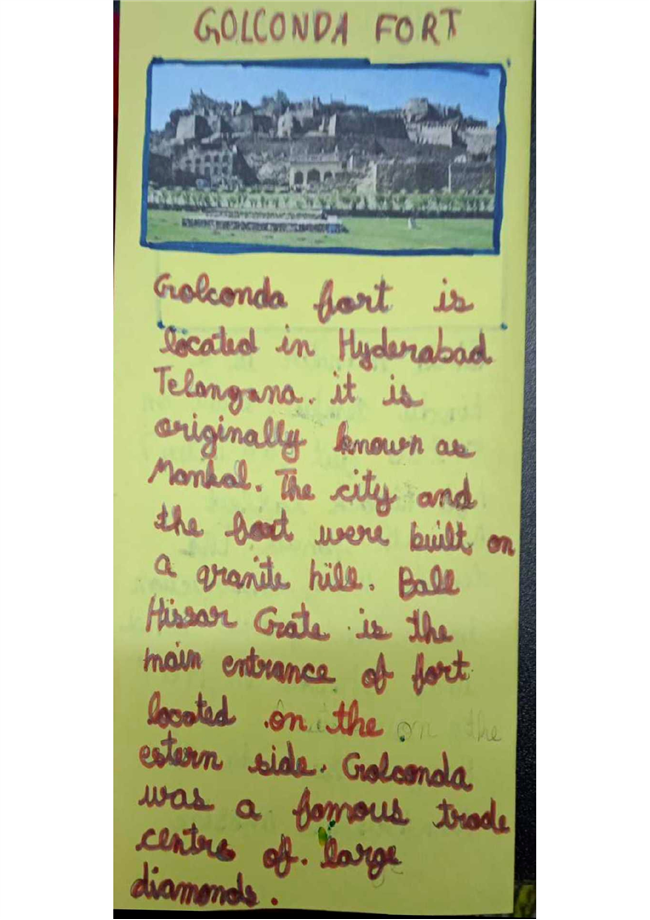 GOLCONDA FORT
Golconda fort is
located in Hyderabad
Telangana. it is
originally known as
Mankal. The city and
the foat were built on
a granite hill. Ball
Hissar Grate is the
main entrance of fort
located on the on the
estern side. Golconda
was a famous trade
centre of large
diamonds.